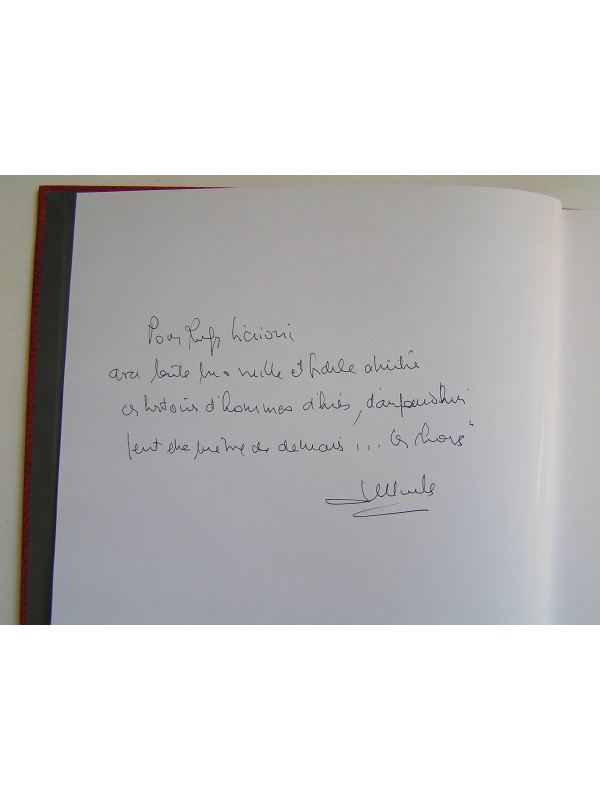 Pour
avec toute ma vieille et fidèle amitié
ces histoires d'hommes d'hier, d'aujourd'hui
peut être même de demain ... les